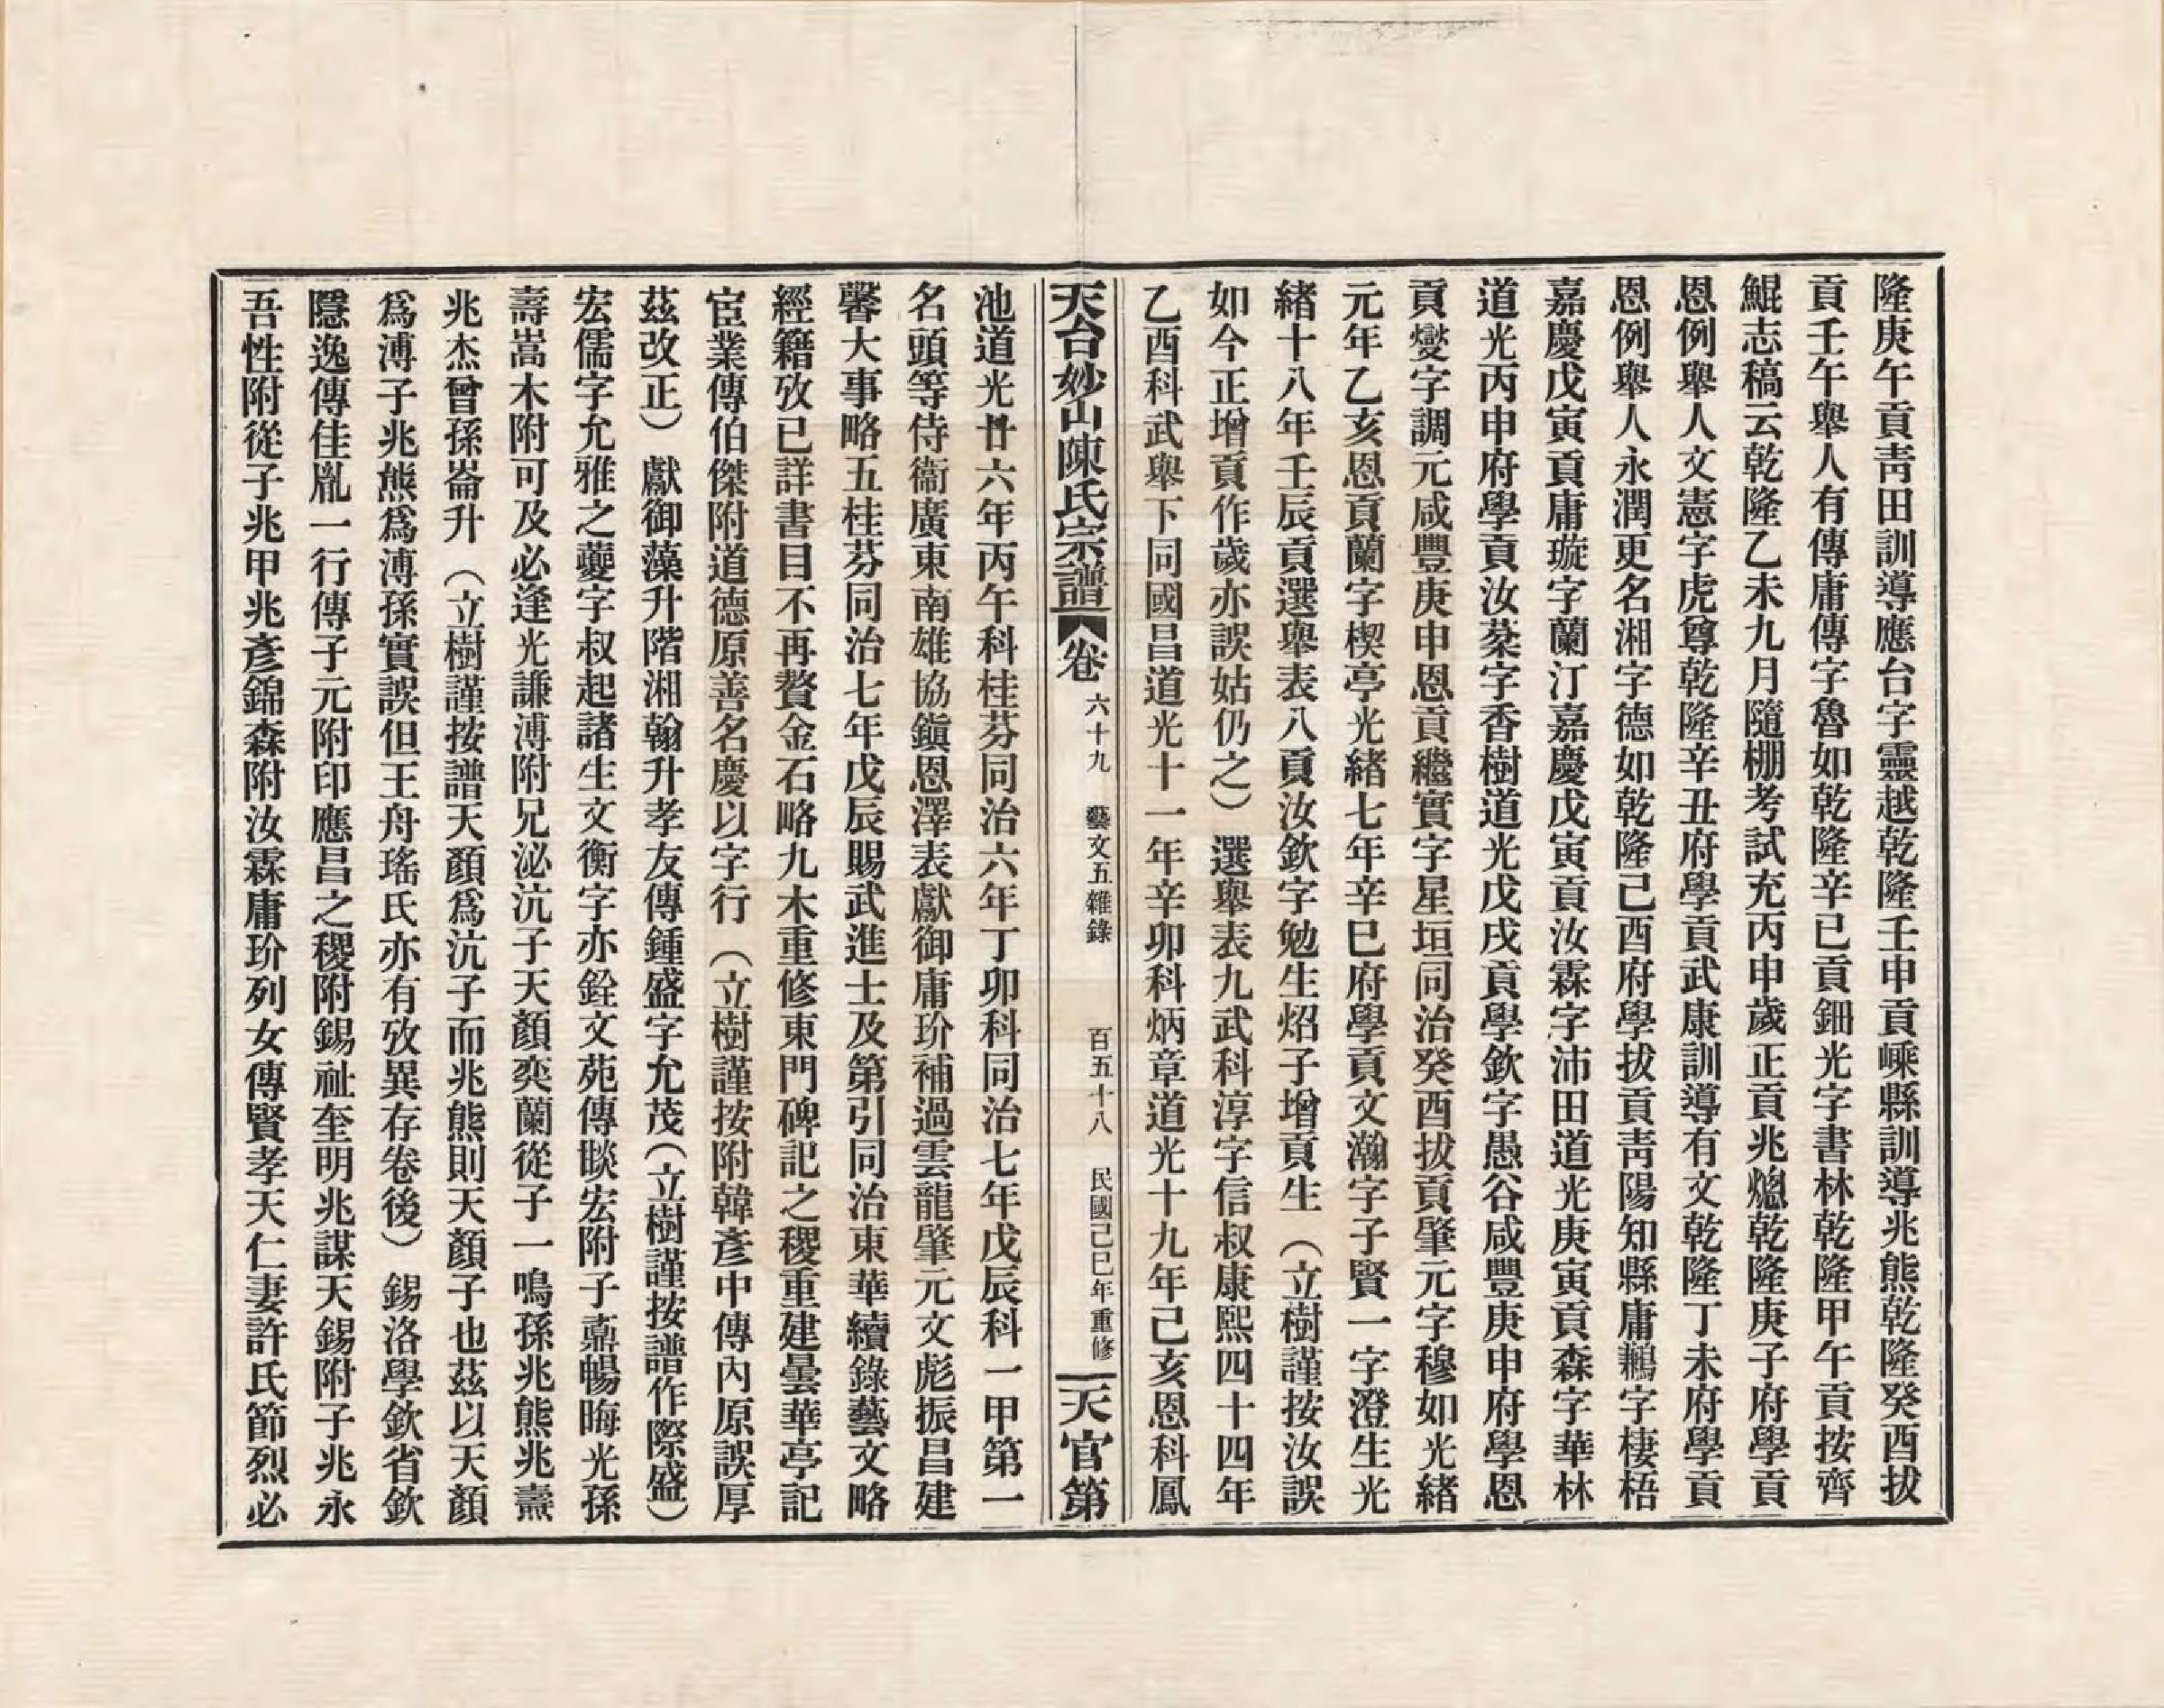 隆庚午貢靑田訓導應台字靈越乾隆壬申貢嵊縣訓導兆熊乾隆癸酉拔
貢壬午舉人有傳庸傳字魯如乾隆辛巳貢鈿光字書林乾隆甲午貢按齊
鯤志稿云乾隆乙未九月隨棚考試充丙申歲正貢兆熜乾隆庚子府學貢
恩例舉人文憲字虎尊乾隆辛丑府學貢武康訓導有文乾隆丁未府學貢
恩例舉人永潤更名湘字德如乾隆己酉府學拔貢靑陽知縣庸鶼字棲梧
嘉慶戊寅貢庸璇字蘭汀嘉慶戊寅貢汝霖字沛田道光庚寅貢森字華林
道光丙申府學貢汝棻字香樹道光戊戌貢學欽字愚谷咸豐庚申府學恩
貢燮字調元咸豐庚申恩貢繼實字星垣同治癸酉拔貢肇元字穆如光緒
元年乙亥恩貢蘭字楔亭光緒七年辛巳府學貢文瀚字子賢一字澄生光
緒十八年壬辰貢選舉表八貢汝欽字勉生炤子增貢生（立樹謹按汝誤
如今正增貢作歲亦誤姑仍之）選舉表九武科淳字信叔康熙四十四年
乙酉科武舉下同國昌道光十一年辛卯科炳章道光十九年己亥恩科鳳
天台妙山陳氏宗譜 卷六十九 藝文五雜錄 百五十八 民國己巳年重修 天官第
池道光廿六年丙午科桂芬同治六年丁卯科同治七年戊辰科一甲第一
名頭等侍衞廣東南雄協鎭恩澤表獻御庸玠補過雲龍肇元文彪振昌建
馨大事略五桂芬同治七年戊辰賜武進士及第引同治東華續錄藝文略
經籍攷已詳書目不再贅金石略九木重修東門碑記之稷重建曇華亭記
宦業傳伯傑附道德原善名慶以字行（立樹謹按附韓彥中傳內原誤厚
茲改正）獻御藻升階湘翰升孝友傳鍾盛字允茂（立樹謹按譜作際盛）
宏儒字允雅之夔字叔起諸生文衡字亦銓文苑傳睒宏附子鼒暢晦光孫
壽嵩木附可及必逢光謙溥附兄泌沆子天顏奕蘭從子一鳴孫兆熊兆燾
兆杰曾孫崙升（立樹謹按譜天顏爲沆子而兆熊則天顏子也茲以天顏
爲溥子兆熊爲溥孫實誤但王舟瑤氏亦有攷異存卷後）錫洛學欽省欽
隱逸傳佳胤一行傳子元附印應昌之稷附錫祉奎明兆謀天錫附子兆永
吾性附從子兆甲兆彥錦森附汝霖庸玠列女傳賢孝天仁妻許氏節烈必